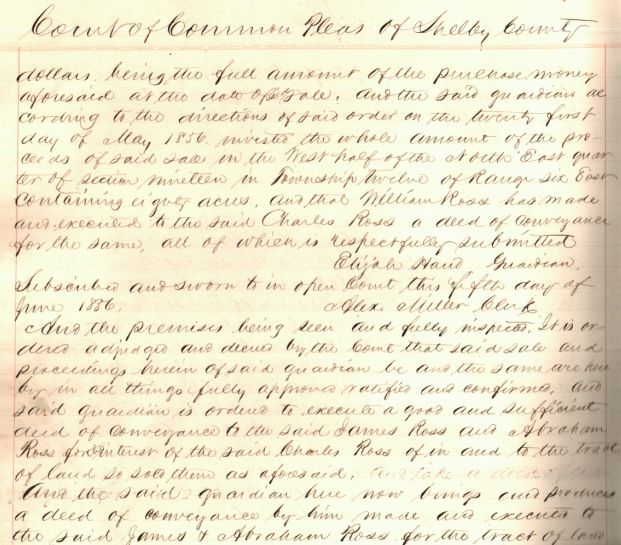 Court of Common Pleas of Shelby County
dollars, being the full amount of the purchase money
aforesaid at the date of sale. And the said guardian ac
cording to the directions of said order on the twenty first
day of May 1856. invested the whole amount of the pro-
ceeds of said sale in the West half of the North East quar
ter of section nineteen in Township twelve of Range six East
containing eighty acres, and that William Ross has made
and executed to the said Charles Ross a deed of conveyance
for the same, all of which is respectfully submitted
Elijah Hand Guardian,
Subscribed and sworn to in open Court this fifth day of
June 1886, Alex Miller Clerk
And the premises being seen and fully inspected, It is or
dered adjudged and decreed by the Court that said sale and
proceedings herein of said guardian be and the same are here
by in all things fully approved ratified and confirmed, and
said guardian is ordered to execute a good and sufficient
deed of conveyance to the said James Ross and Abraham
Ross for interest of the said Charles Ross of in and to the tract
of land so sold them as aforesaid.
And the said guardian here now brings and produces
a deed of conveyance by him made and executed to
the said James & Abraham Ross for the tract of land